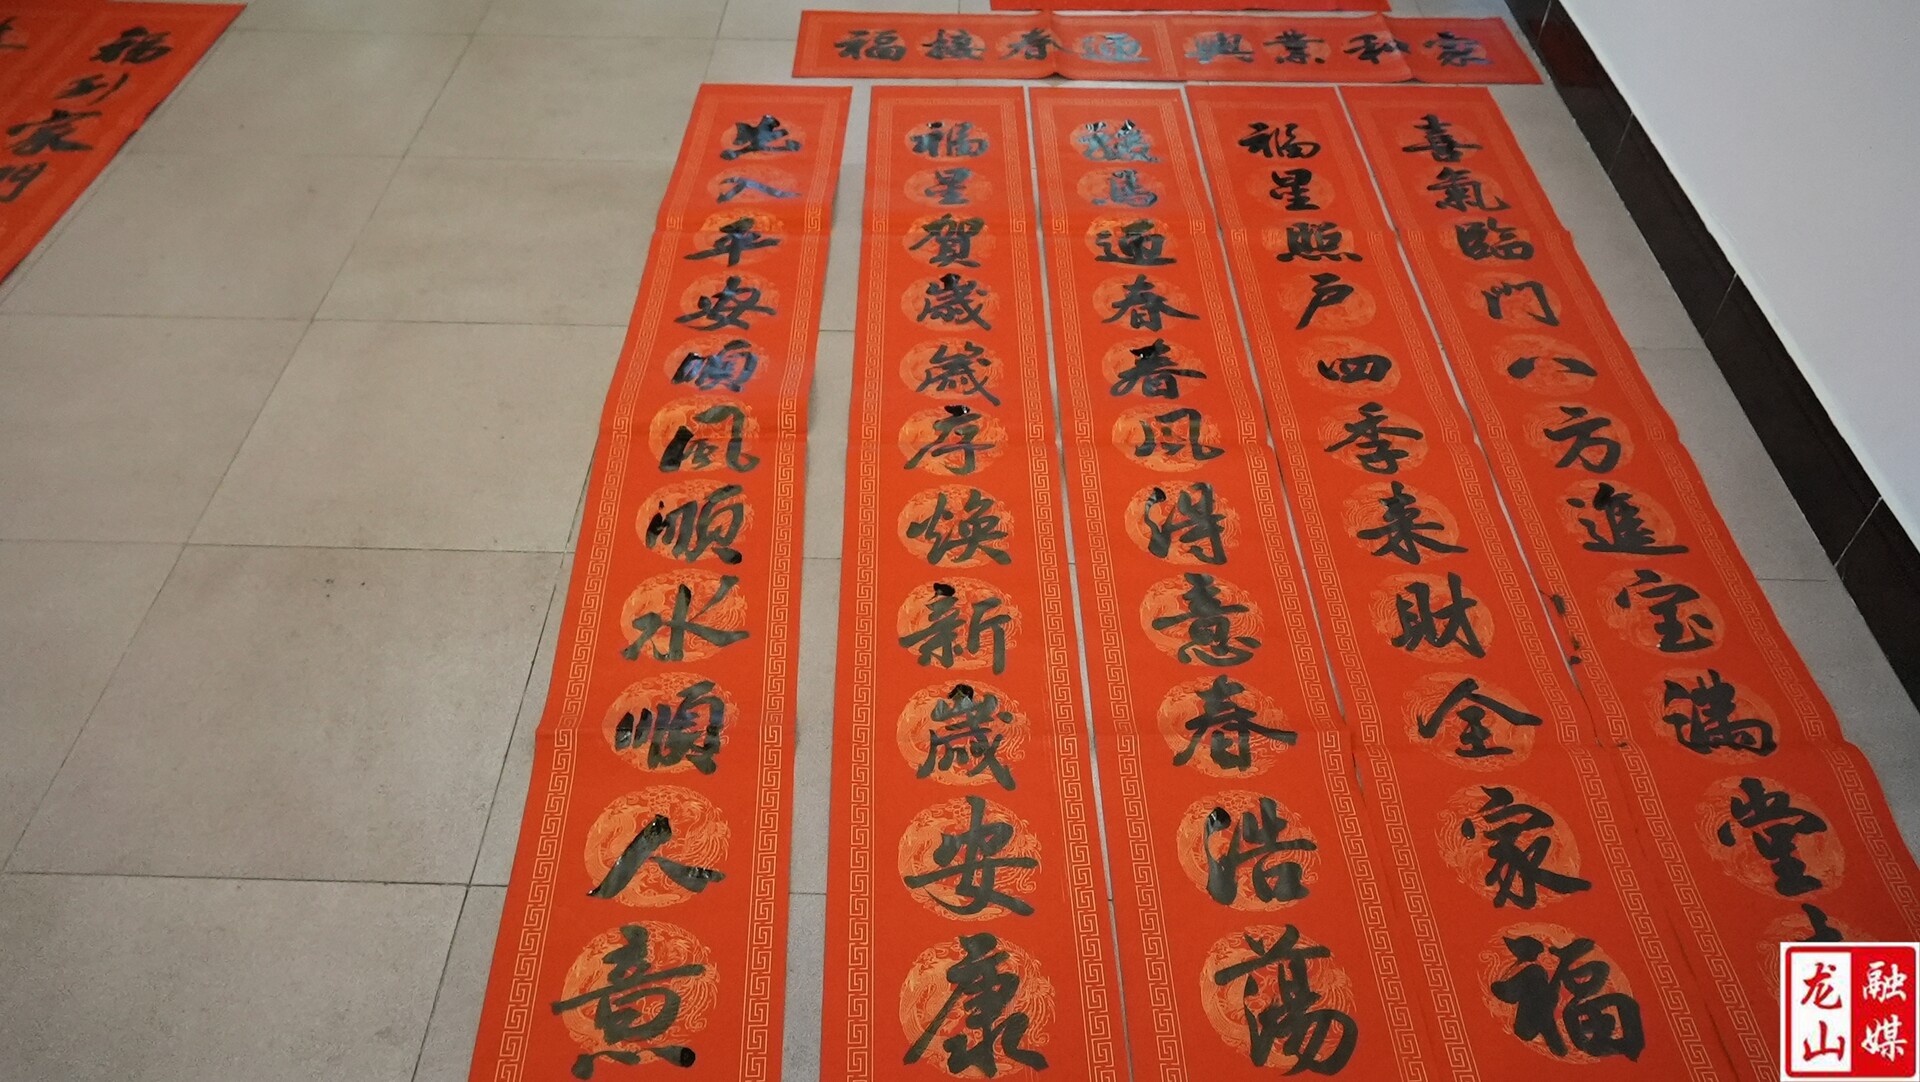 福到家門
家和業興
迎春接福
喜氣臨門八方進宝滿堂
福星照户四季来財全家福
駿馬迎春春風得意春浩蕩
福星賀歲歲序煥新歲安康
出入平安順風順水順人意
龙山
融媒